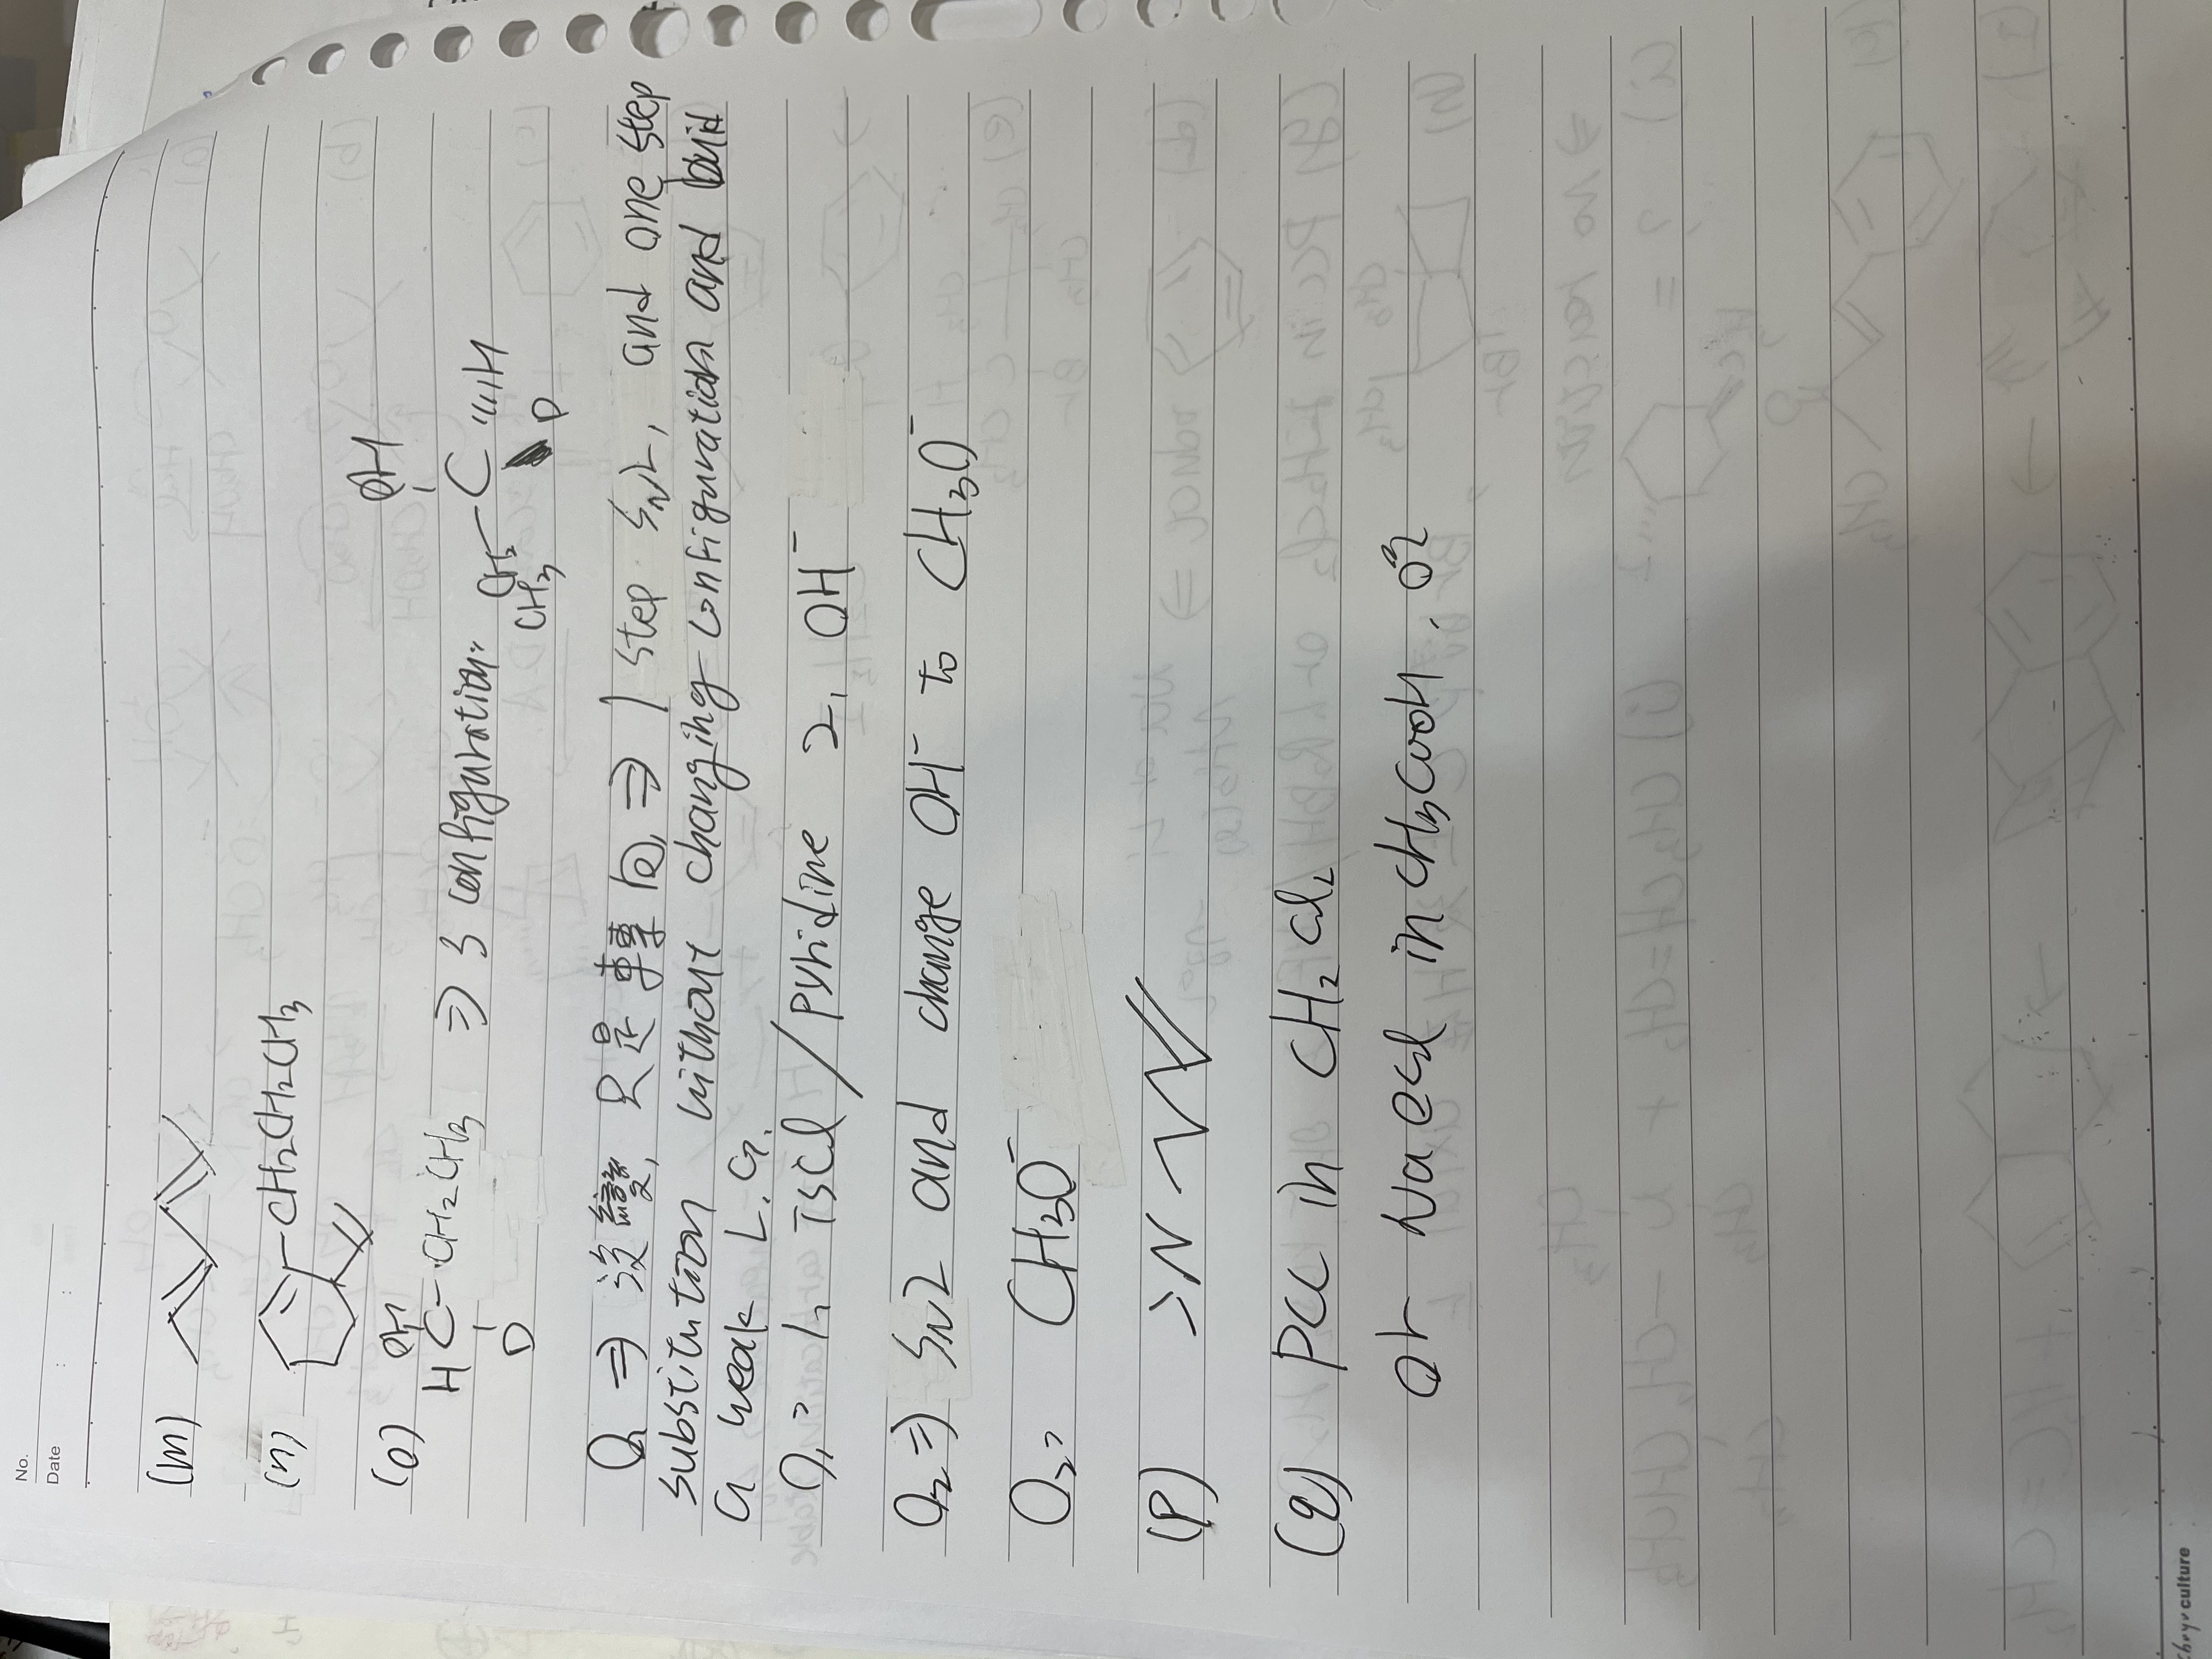 No.
Date : :
(m)
(n) -CH₂CH₂CH₃
(o) OH
H C-CH₂CH₃ ⇒ 3 configuration:
D
OH
C
CH₂ H
CH₃ D
O₁ ⇒ 沒變, 只是轉向, ⇒ 1 step SN2, and one step
substitution without changing configuration and buid
a weak L.G.
O₁ = 1, TsCl / pyridine 2, OH⁻
O₂ ⇒ SN2 and change OH⁻ to CH₃O⁻
O₂ = CH₃O⁻
(p) N
(q) PCC in CH₂Cl₂
or Naocl in CH₃COOH, 0°
culture